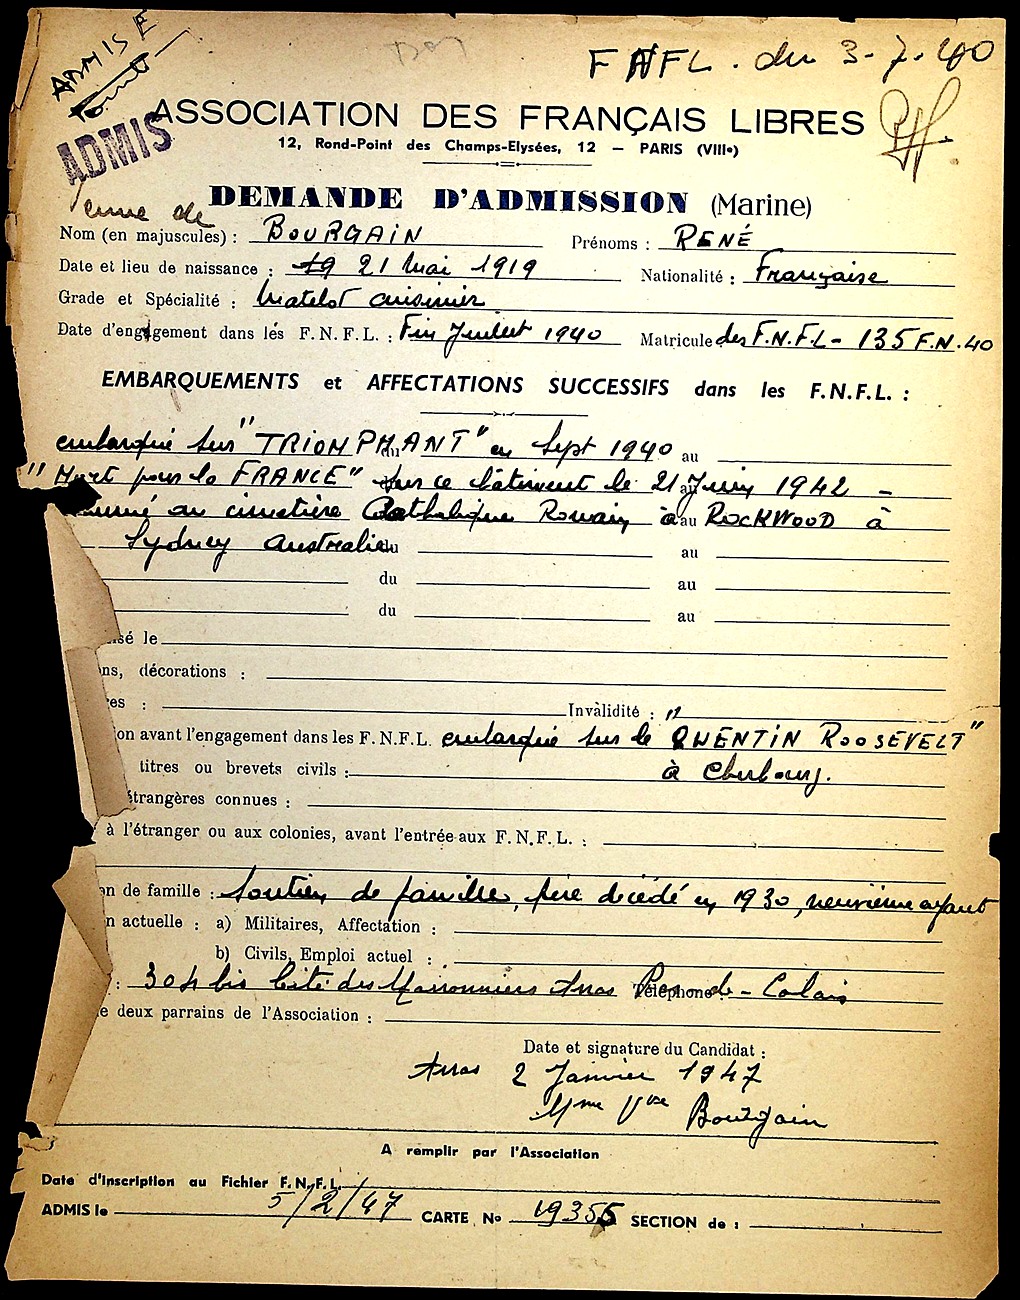 ADMISE
FNFL. du 3-7-40
ASSOCIATION DES FRANÇAIS LIBRES
12, Rond-Point des Champs-Elysées, 12 — PARIS (VIIIe)
ADMIS
DEMANDE D'ADMISSION (Marine)
veuve de
Nom (en majuscules) : BOURGAIN Prénoms : RENÉ
Date et lieu de naissance : 19 21 Mai 1919 Nationalité : Française
Grade et Spécialité : Matelot cuisinier
Date d'engagement dans les F.N.F.L. : Fin Juillet 1940 Matricule des F.N.F.L - 135 F.N.40
EMBARQUEMENTS et AFFECTATIONS SUCCESSIFS dans les F.N.F.L. :
embarqué sur "TRIOMPHANT" en Sept 1940 au
"Mort pour la FRANCE" sur ce bâtiment le 21 Juin 1942 -
au cimetière Catholique Romain à au ROCKWOOD à
Sydney Australie du au
du au
du au
sé le
ns, décorations :
es : Invalidité : "
on avant l'engagement dans les F.N.F.L. embarqué sur le "QUENTIN ROOSEVELT"
titres ou brevets civils : à Cherbourg.
étrangères connues :
à l'étranger ou aux colonies, avant l'entrée aux F.N.F.L. :
on de famille : soutien de famille, père décédé en 1930, neuvième enfant
n actuelle : a) Militaires, Affectation :
b) Civils, Emploi actuel :
: 304 bis Cité des Marronniers Arras Téléphone Pas-de-Calais
e deux parrains de l'Association :
Date et signature du Candidat :
Arras 2 Janvier 1947
Mme Vve Bourgain
A remplir par l'Association
Date d'inscription au Fichier F.N.F.L.
ADMIS le 5/2/47 CARTE No 19355 SECTION de :